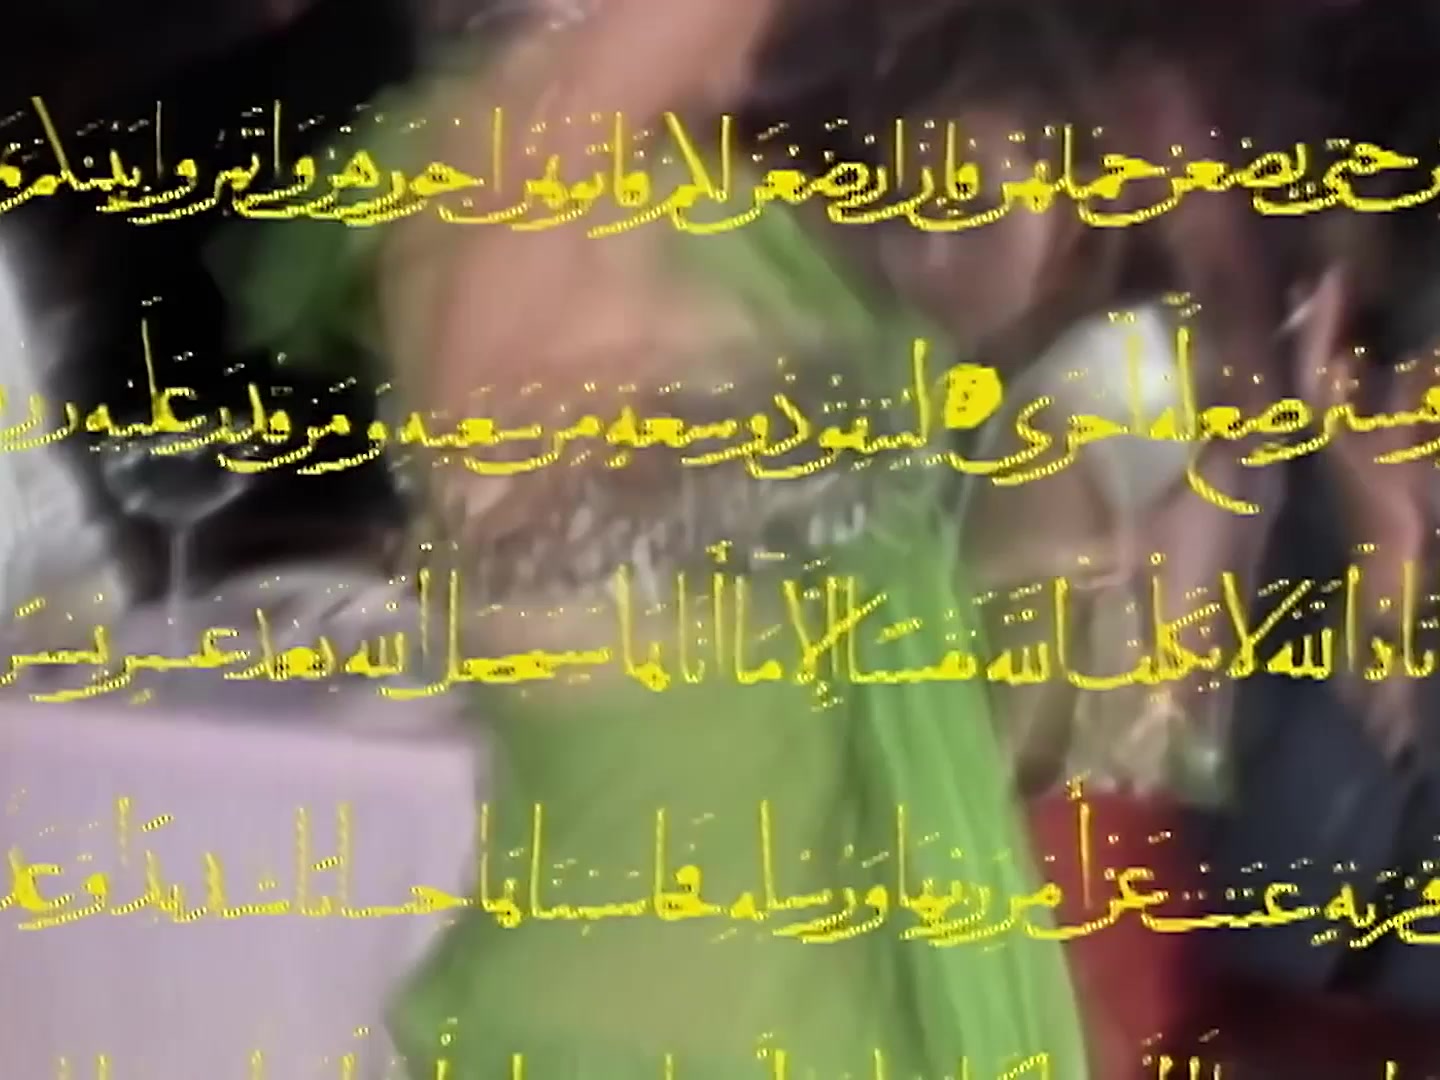 حتى يضعن حملهن فان ارضعن لكم فاتوهن اجورهن واتمروا بينكم
فسترضع له أخرى لينفق ذو سعة من سعته ومن قدر عليه
الله لا يكلف الله نفسا إلا ما أتاها سيجعل الله بعد عسر
قرية عتت عن أمر ربها ورسله فحاسبناها حسابا شديدا